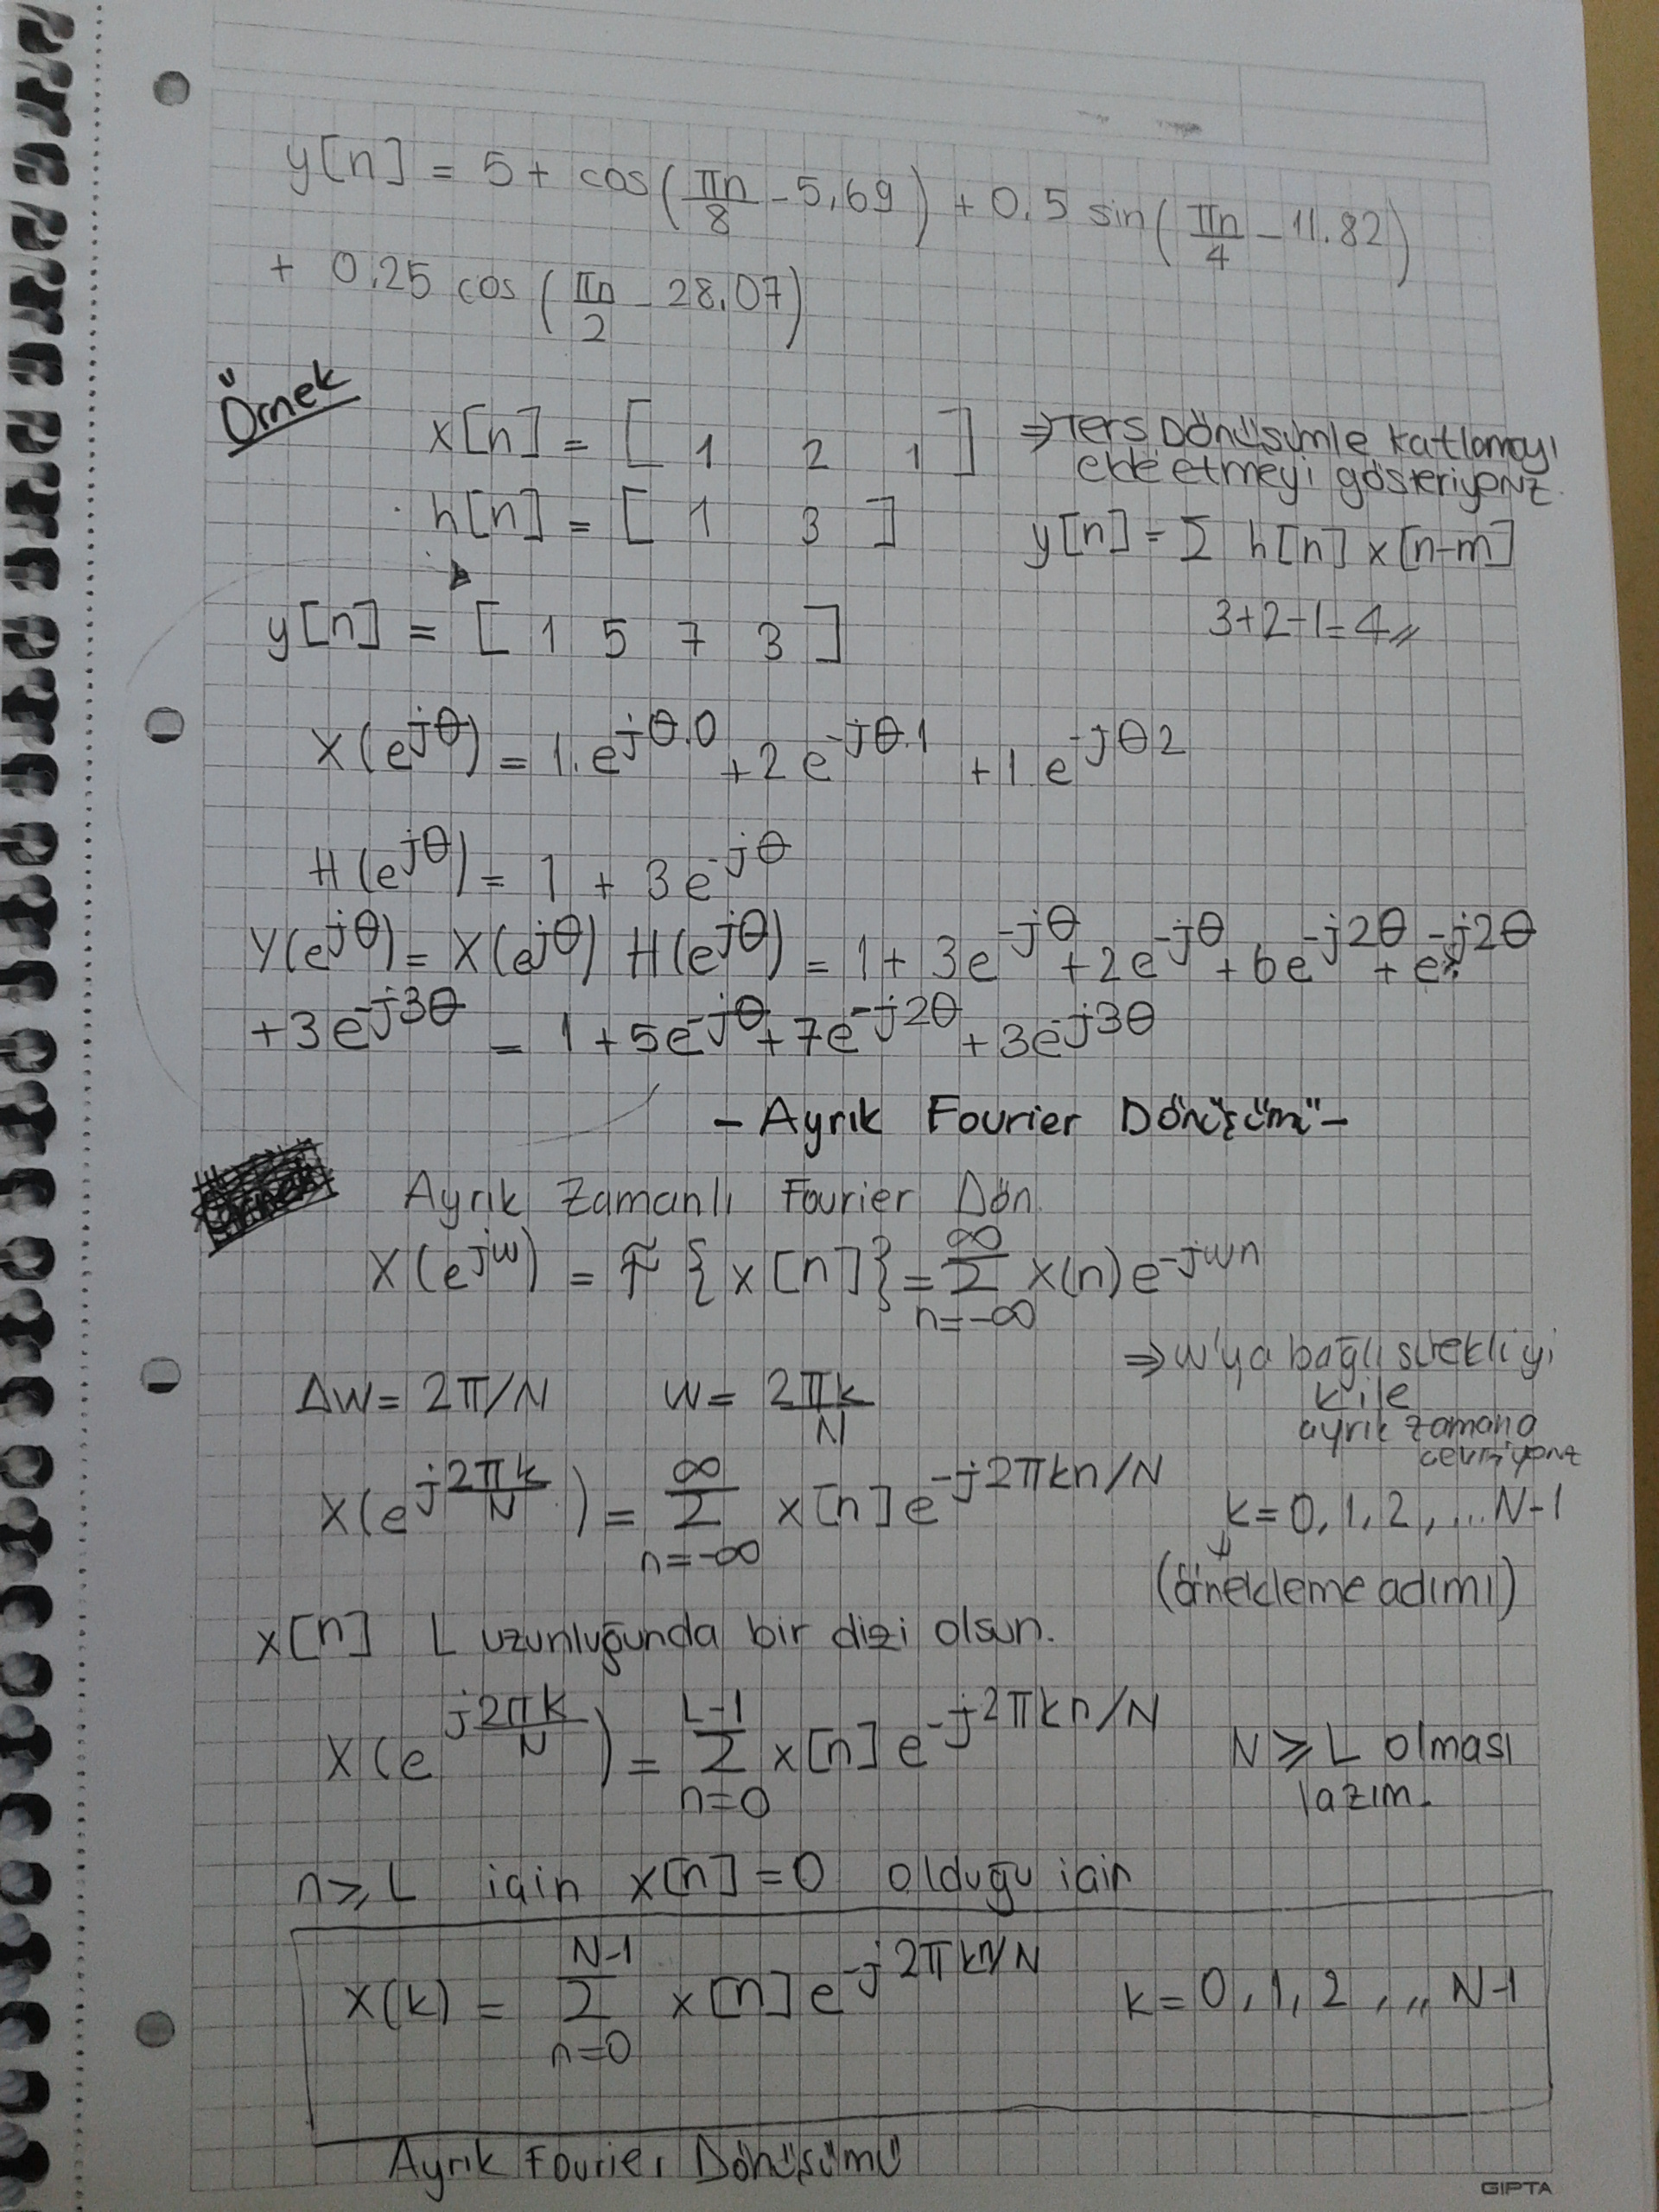 y[n] = 5 + cos(πn/8 - 5,69) + 0.5 sin(πn/4 - 11.82)
+ 0.25 cos(πn/2 - 28.07)
Örnek
x[n] = [ 1 2 1 ] ⇒ Ters Dönüşümle katlamayı
elde etmeyi gösteriyoruz.
h[n] = [ 1 3 ] y[n] = Σ h[n] x[n-m]
y[n] = [ 1 5 7 3 ] 3+2-1=4//
X(e^jθ) = 1.e^jθ.0 + 2e^-jθ.1 + 1.e^-jθ2
H(e^jθ) = 1 + 3e^-jθ
Y(e^jθ) = X(e^jθ) H(e^jθ) = 1 + 3e^-jθ + 2e^-jθ + 6e^-j2θ + e^-j2θ
+3e^-j3θ = 1 + 5e^-jθ + 7e^-j2θ + 3e^-j3θ
- Ayrık Fourier Dönüşümü -
Ayrık Zamanlı Fourier Dön.
X(e^jw) = F {x[n]} = Σ_{n=-∞}^{∞} x(n) e^-jwn
⇒ w'ya bağlı sürekliyi
k ile
ayrık zamana
çeviriyoruz
Δw = 2π/N w = 2πk/N
X(e^j2πk/N) = Σ_{n=-∞}^{∞} x[n] e^-j2πkn/N k = 0, 1, 2, ... N-1
(örnekleme adımı)
x[n] L uzunluğunda bir dizi olsun.
X(e^j2πk/N) = Σ_{n=0}^{L-1} x[n] e^-j2πkn/N N ≥ L olması
lazım.
n ≥ L için x[n] = 0 olduğu için
X(k) = Σ_{n=0}^{N-1} x[n] e^-j2πkn/N k = 0, 1, 2, ,, N-1
Ayrık Fourier Dönüşümü
GIPTA